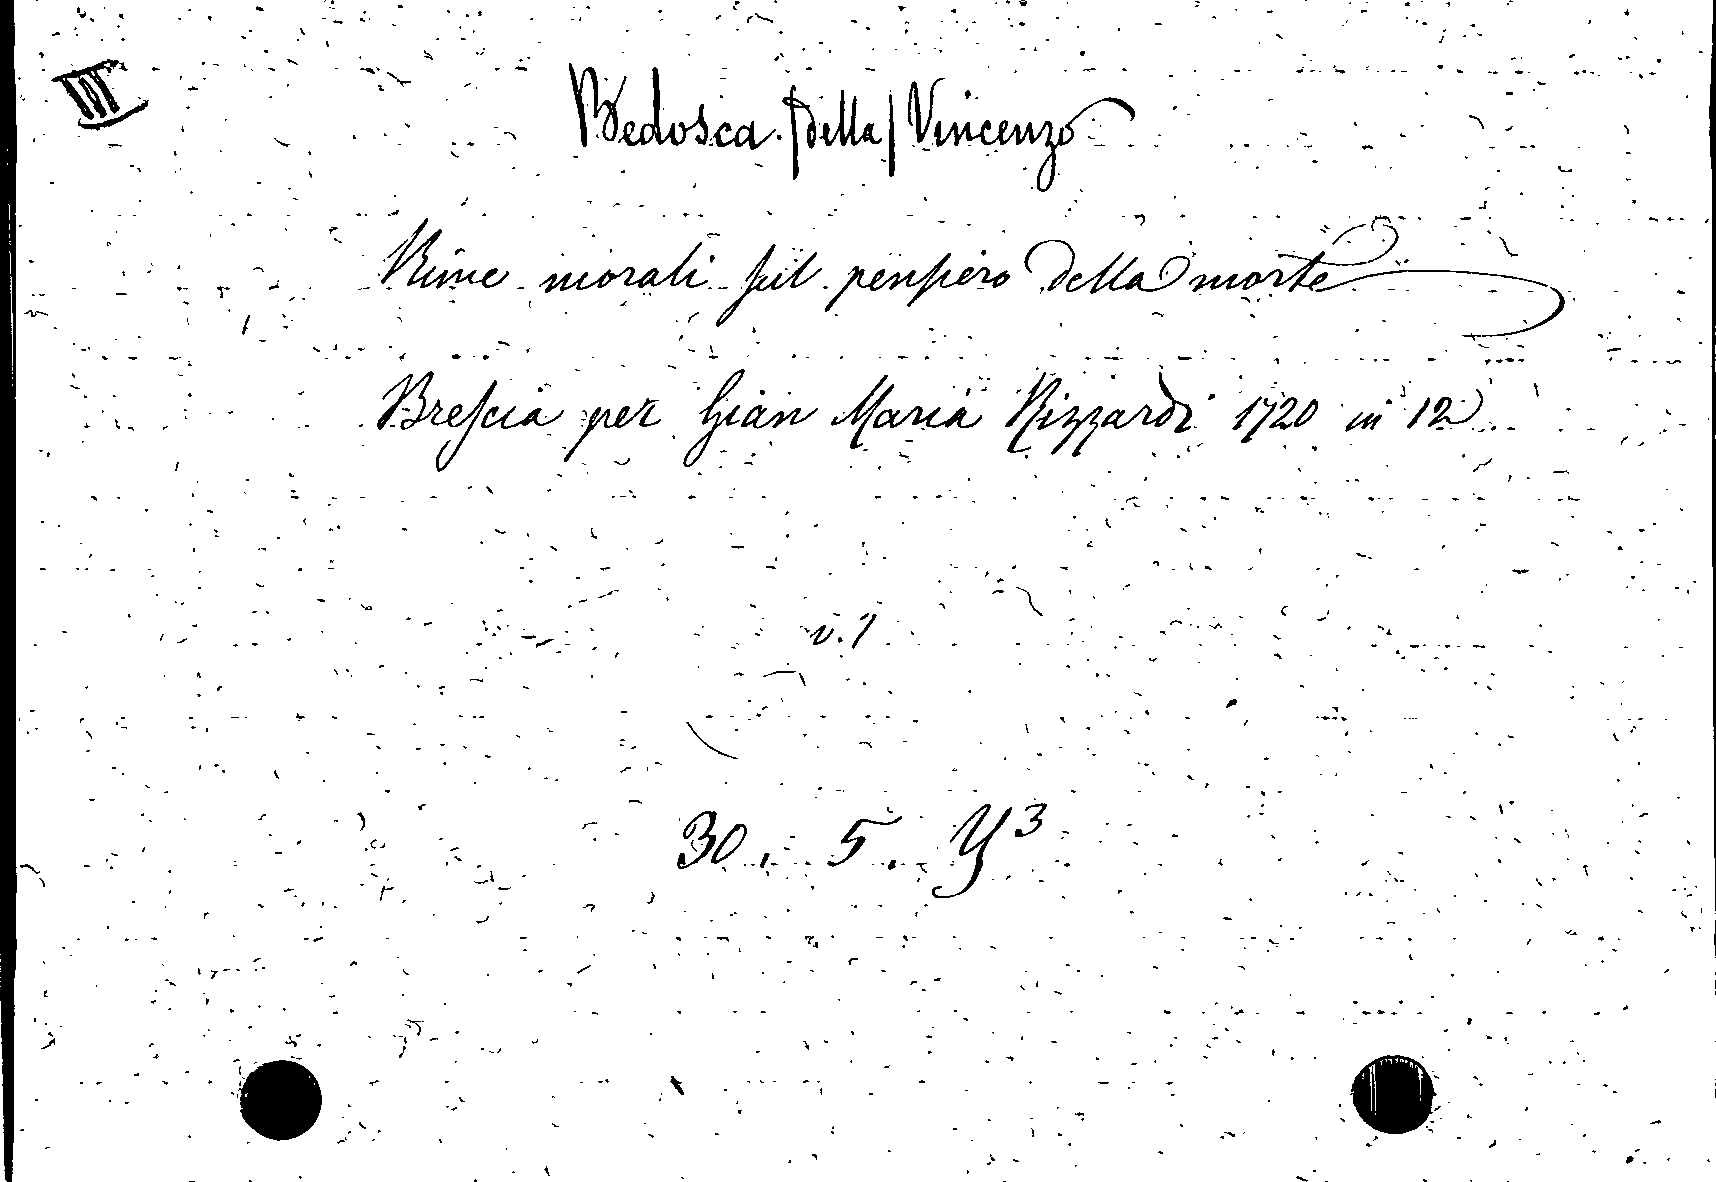 III
Bedosca (della) Vincenzo
Rime morali sul pensiero della morte
Brescia per Gian Maria Rizzardi 1720 in 12
v. 1
30. 5. Y³